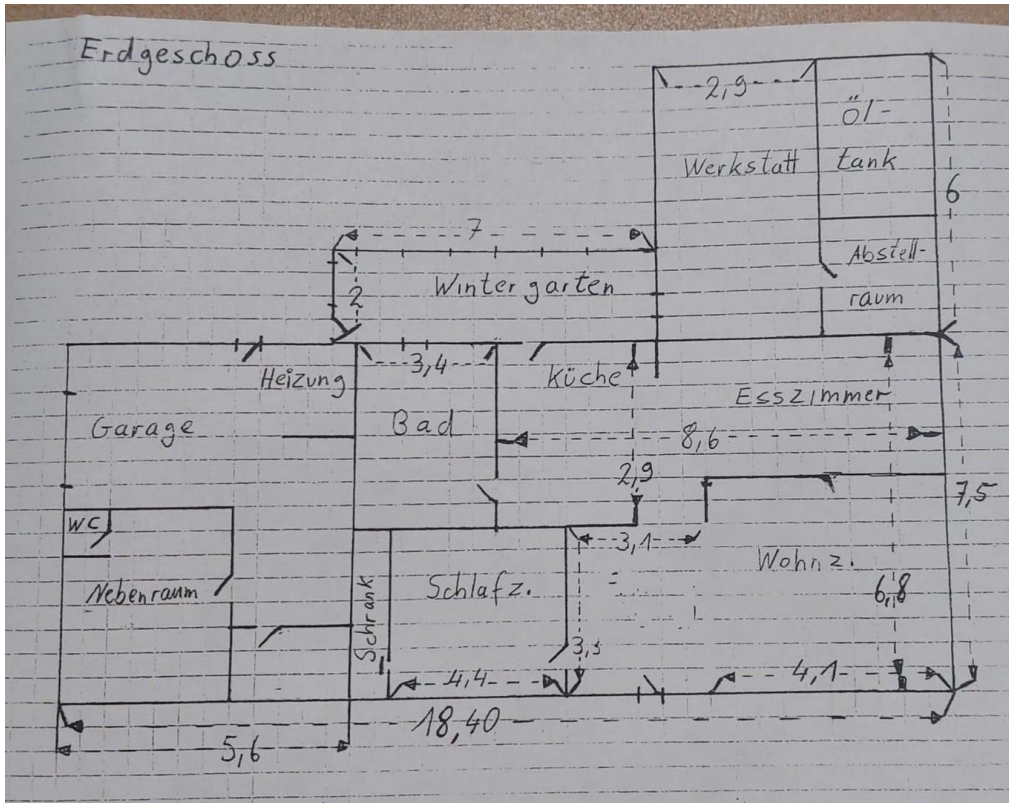 Erdgeschoss
2,9
Öl-
tank
Werkstatt
6
7
Wintergarten
2
Abstell-
raum
3,4
Heizung
Küche
Esszimmer
Garage
Bad
8,6
2,9
7,5
WC
3,1
Wohnz.
Nebenraum
Schrank
Schlafz.
6,8
3,5
4,4
4,1
18,40
5,6